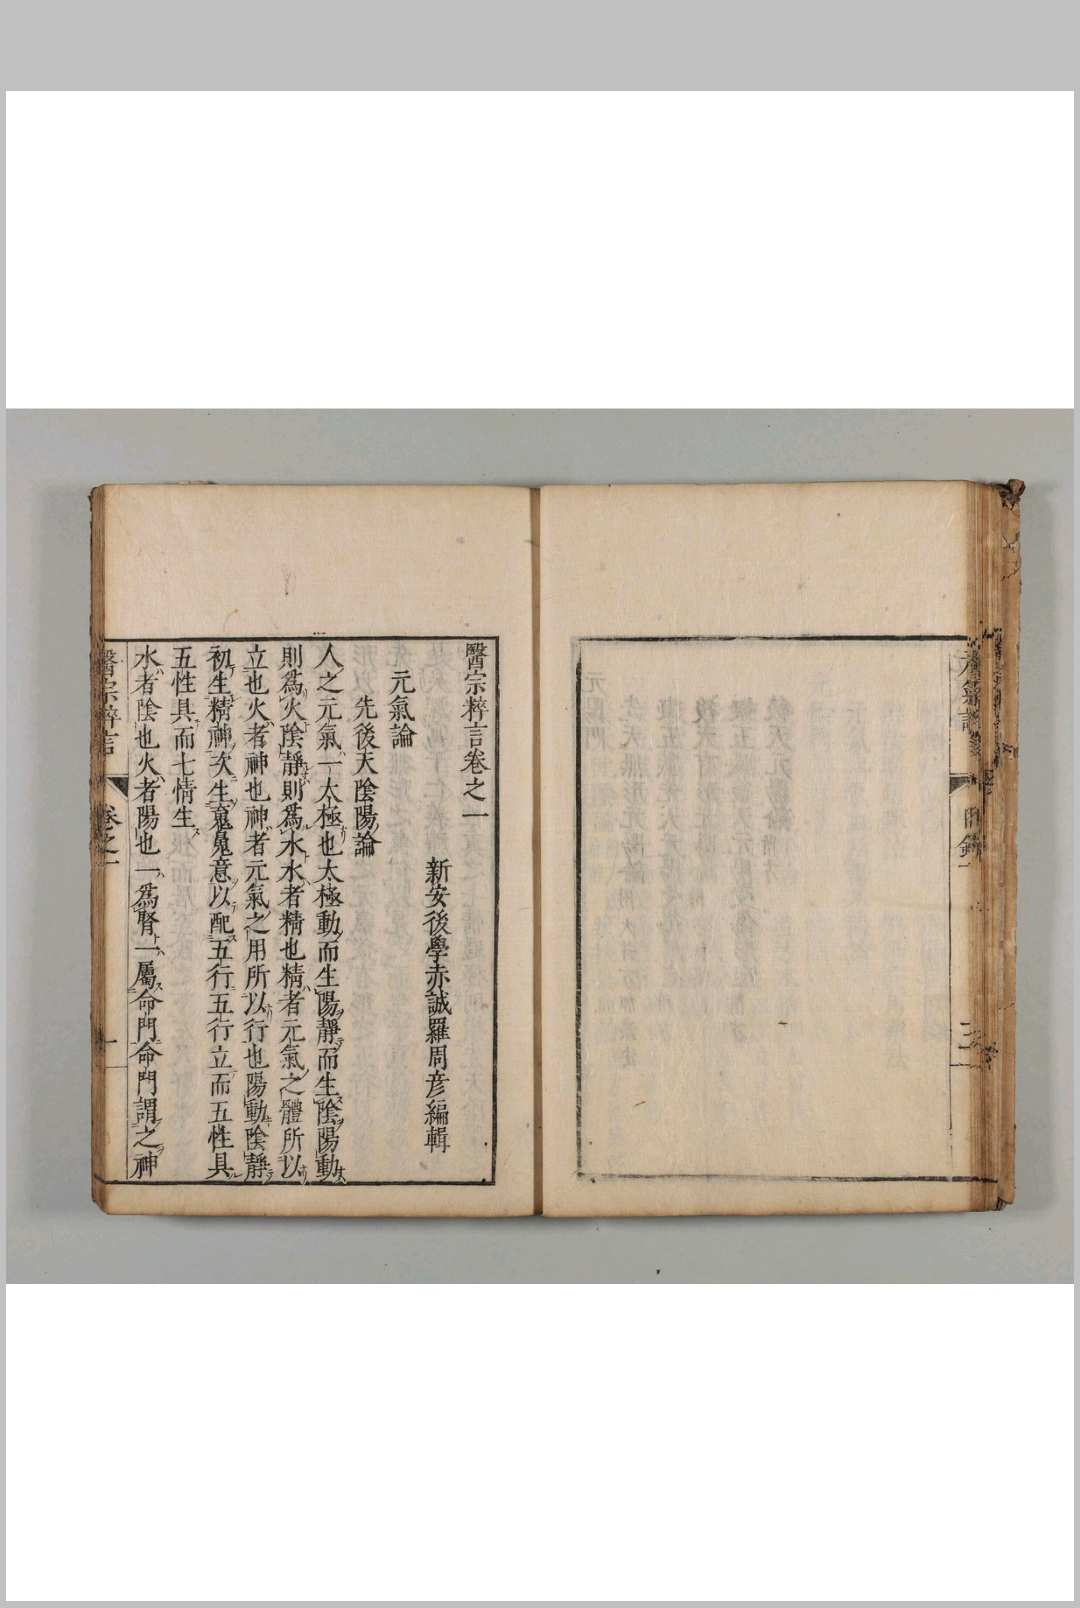 醫宗粹言卷之一
新安後學赤誠羅周彥編輯
元氣論
先後天陰陽論
人之元氣一太極也太極動而生陽靜而生陰陽動
則爲火陰靜則爲水水者精也精者元氣之體所以
立也火者神也神者元氣之用所以行也陽動陰靜
初生精神次生䰟魄意以配五行五行立而五性具
五性具而七情生
水者陰也火者陽也一爲腎一屬命門命門謂之神
醫宗粹言 卷之一 一